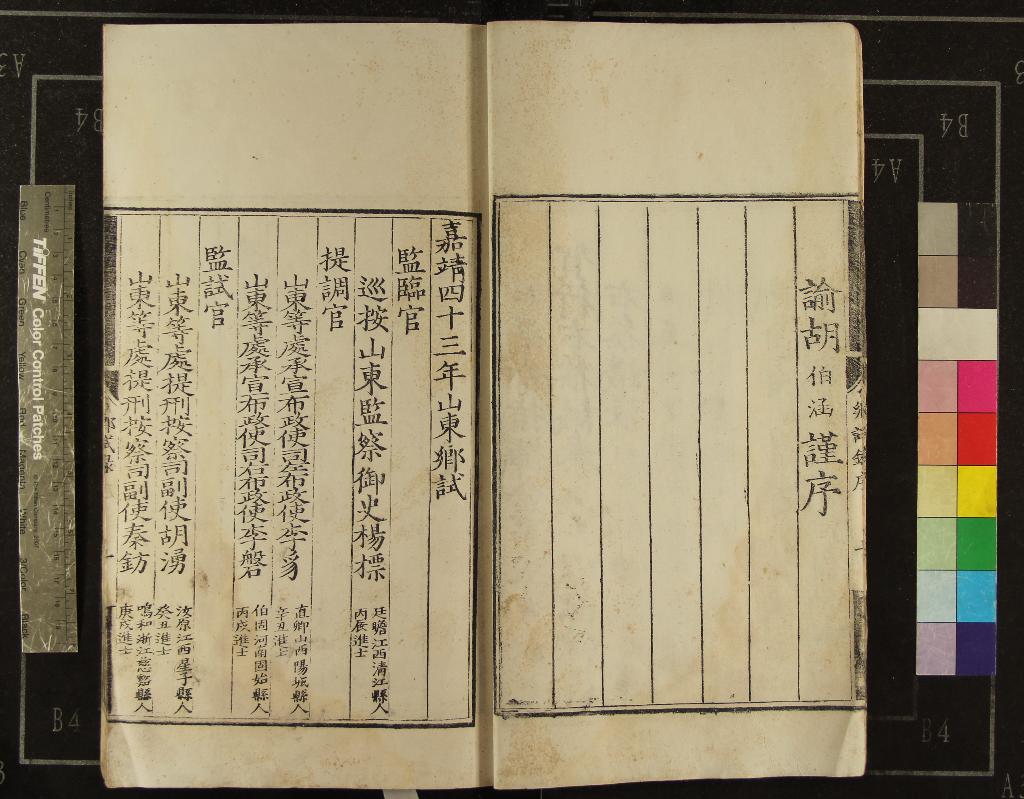 諭胡伯涵謹序
嘉靖四十三年山東鄉試
監臨官
巡按山東監察御史楊標
廷瞻江西清江縣人
丙辰進士
提調官
山東等處承宣布政使司左布政使李豸
直卿山西陽城縣人
辛丑進士
山東等處承宣布政使司右布政使李磐
伯固河南固始縣人
丙戌進士
監試官
山東等處提刑按察司副使胡湧
汝原江西星子縣人
癸丑進士
山東等處提刑按察司副使秦鈁
鳴和浙江慈谿縣人
庚戌進士
TIFFEN Color Control Patches
A3
B4
A4
B4
B4
B4